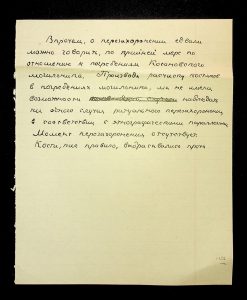 Впрочем, о перезахоронении едва ли
можно говорить, по крайней мере по
отношению к погребениям Кокэновского
могильника. Производя расчистку костяков
в погребениях могильника, мы не имели
возможности наблюдать
ни одного случая ритуального перезахоронения
в соответствии с этнографическими параллелями.
Момент перезахоронения отсутствует.
Кости, как правило, выбрасывались прочь